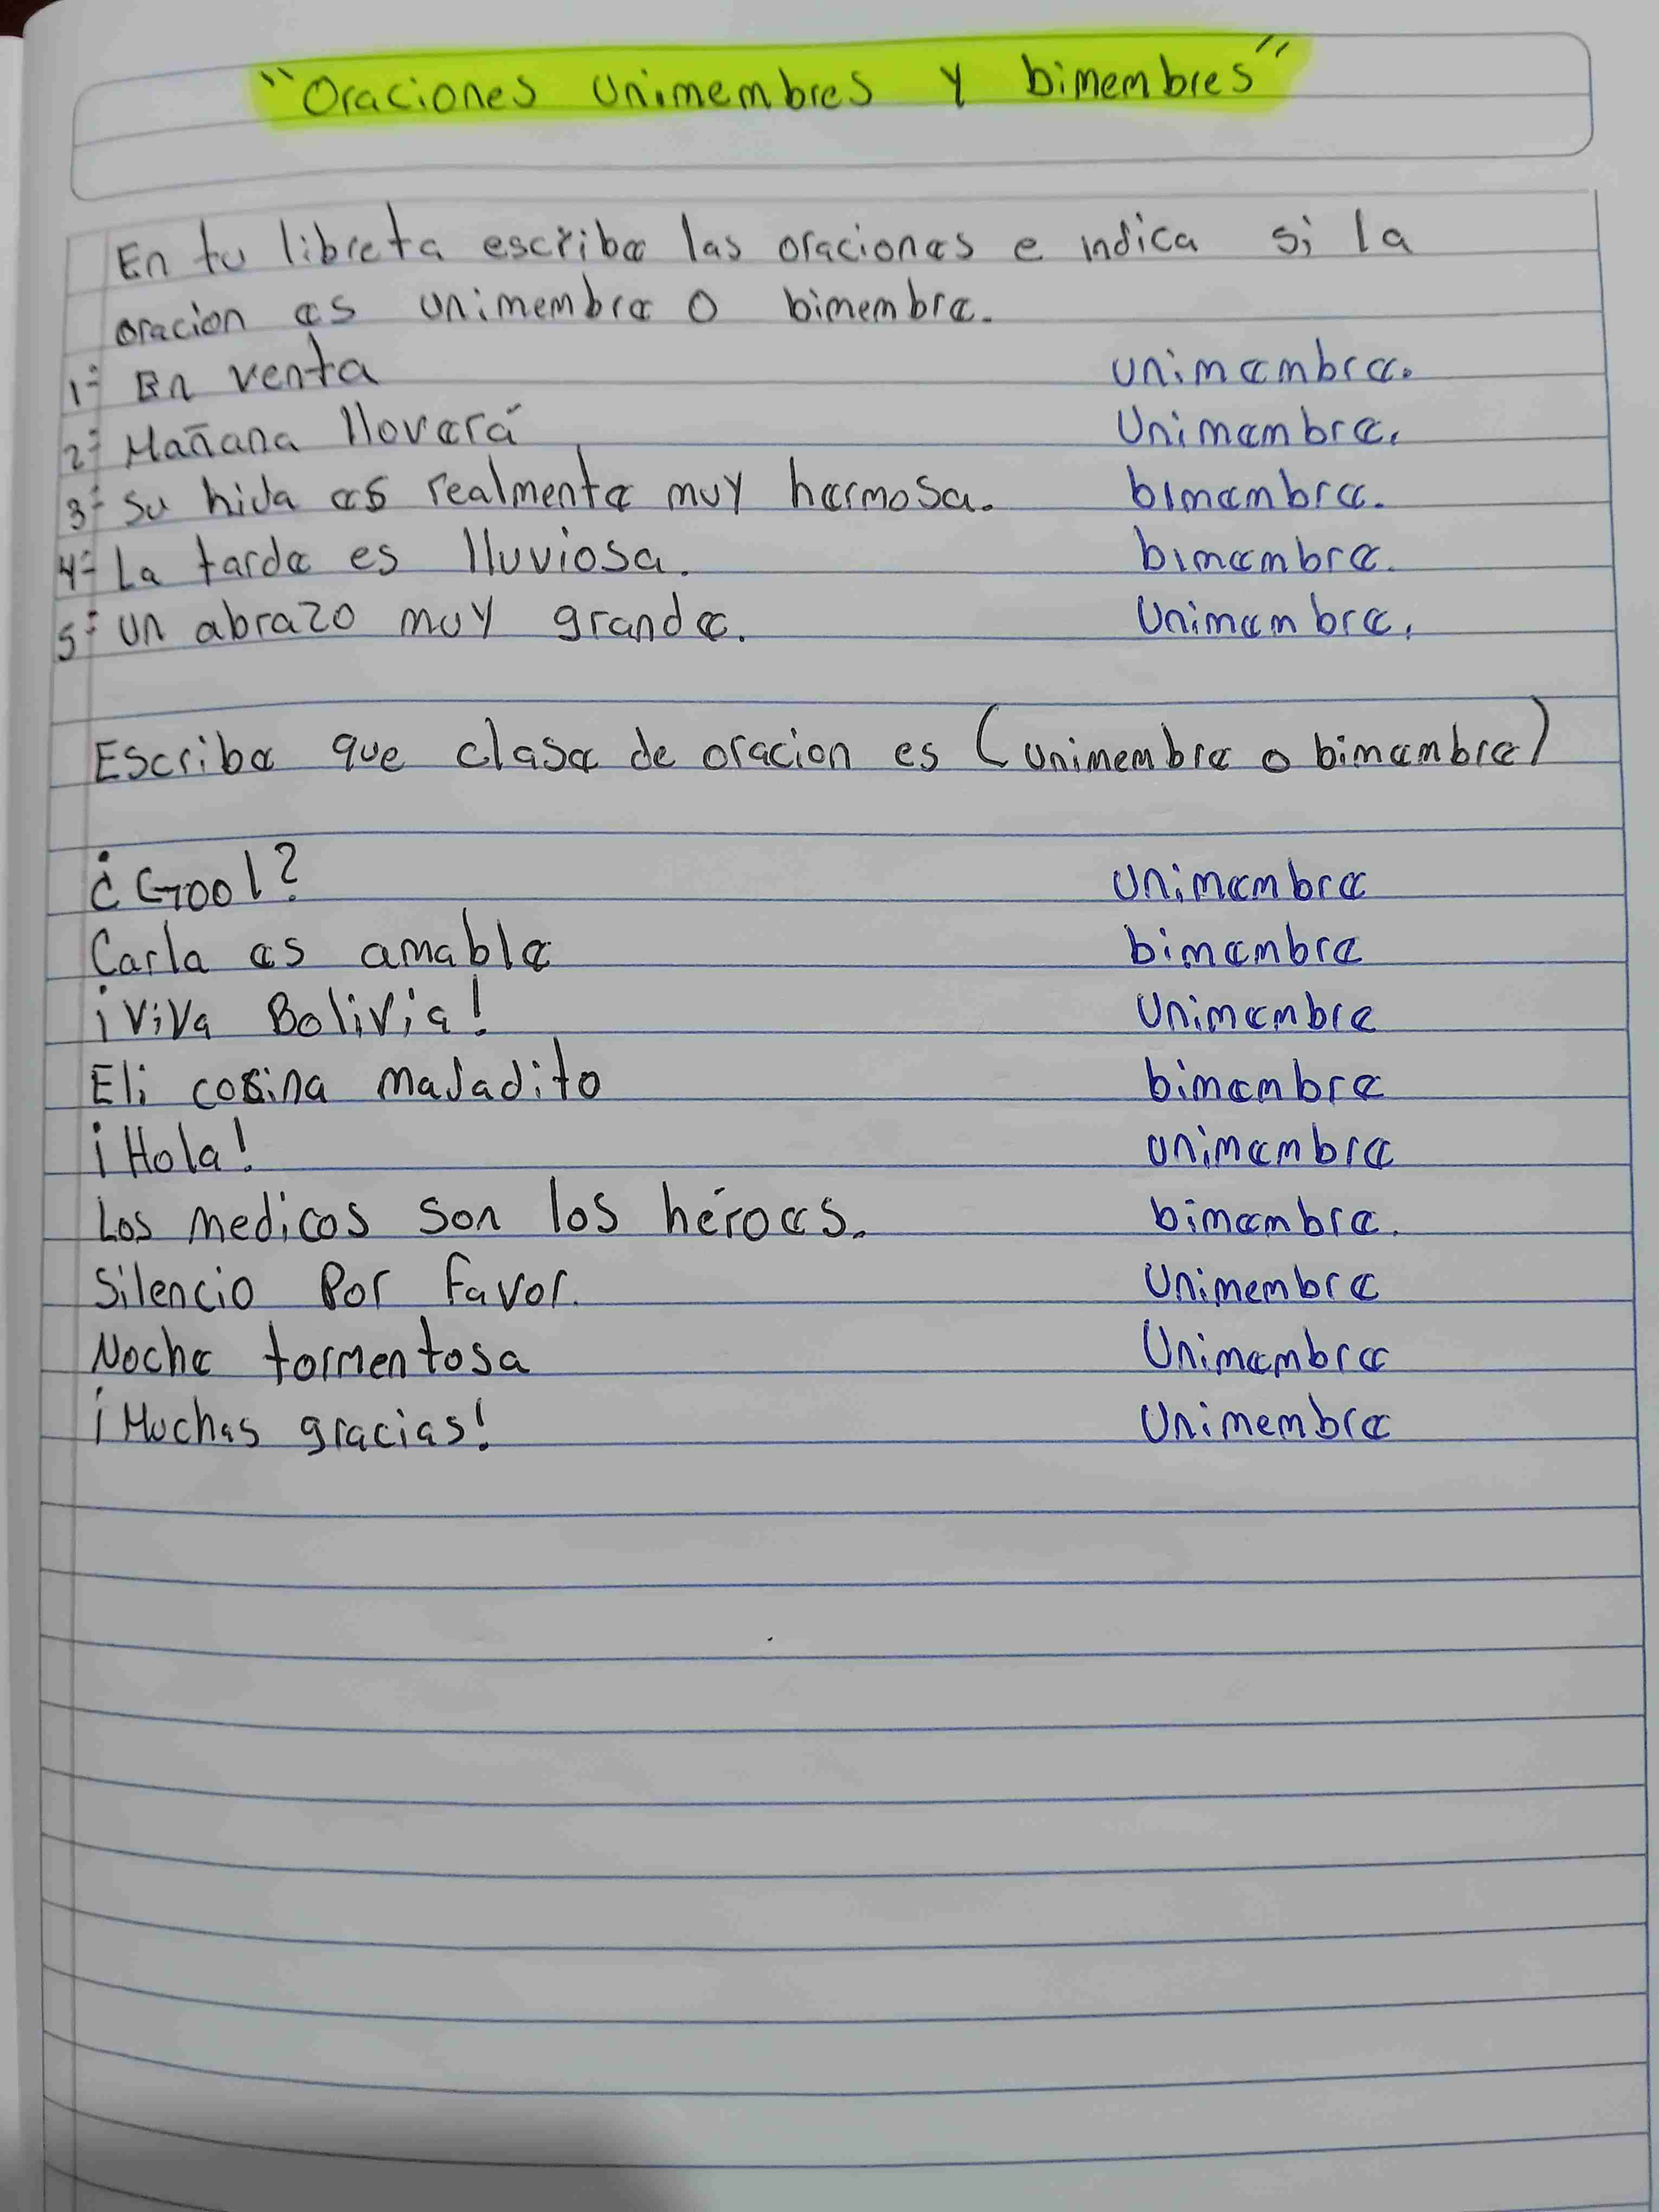 "Oraciones Unimembres y bimembres"
En tu libreta escribe las oraciones e indica si la
oracion es unimembre o bimembre.
1- En venta unimembre.
2- Mañana lloverá Unimembre.
3- Su hida es realmente muy hermosa. bimembre.
4- La tarde es lluviosa. bimembre.
5- Un abrazo muy grande. Unimembre.
Escribe que clase de oracion es (unimembre o bimembre)
¿Gool? Unimembre
Carla es amable bimembre
¡Viva Bolivia! Unimembre
Eli cosina majadito bimembre
¡Hola! unimembre
Los medicos son los héroes. bimembre.
Silencio Por favor. Unimembre
Noche tormentosa Unimembre
¡Muchas gracias! Unimembre